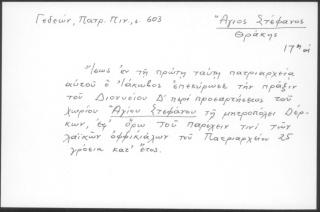 Γεδεών, Πατρ. Πιν., σ. 603
Ἅγιος Στέφανος
Θράκης
17ῃ αἰ
Ἴσως ἐν τῇ πρώτῃ ταύτῃ πατριαρχείᾳ
αὐτοῦ ὁ Ἰάκωβος ἐπεκύρωσε τὴν πρᾶξιν
τοῦ Διονυσίου Δ' περὶ προσαρτήσεως τοῦ
χωρίου Ἁγίου Στεφάνου τῇ μητροπόλει Δέρ-
κων, ἐφ' ὅρῳ τοῦ παρέχειν τινὶ τῶν
λαϊκῶν ὀφφικιάλων τοῦ Πατριαρχείου 25
γρόσια κατ' ἔτος.